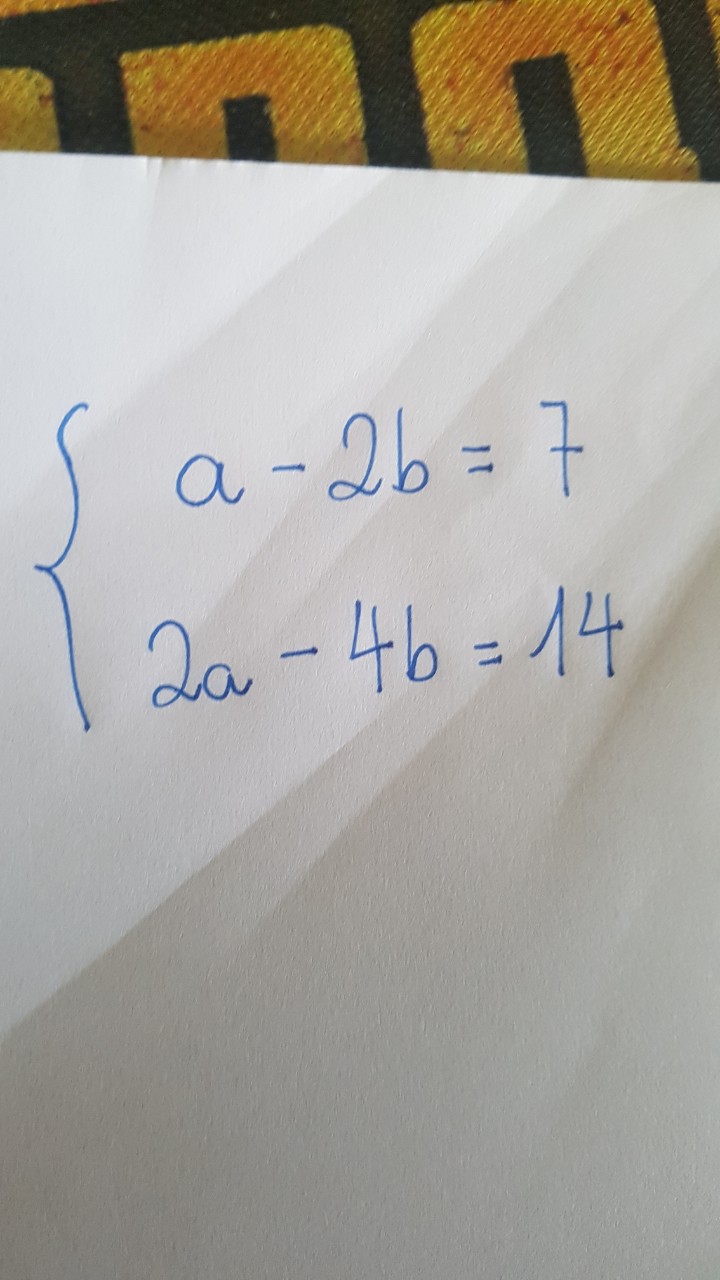 a - 2b = 7
2a - 4b = 14